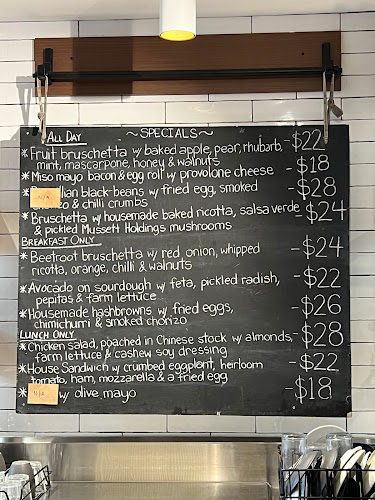 ALL DAY ~SPECIALS~
* Fruit bruschetta w/ baked apple, pear, rhubarb, -$22
mint, mascarpone, honey & walnuts
* Miso mayo bacon & egg roll w/ provolone cheese -$18
* lian black beans w/ fried egg, smoked -$28
N/A o & chilli crumbs
* Bruschetta w/ housemade baked ricotta, salsa verde -$24
& pickled Mussett Holdings mushrooms
BREAKFAST ONLY
* Beetroot bruschetta w/ red onion, whipped -$24
ricotta, orange, chilli & walnuts
* Avocado on sourdough w/ feta, pickled radish, -$22
pepitas & farm lettuce
* Housemade hashbrowns w/ fried eggs, -$26
chimichurri & smoked chorizo
LUNCH ONLY
* Chicken salad, poached in Chinese stock w/ almonds, -$28
farm lettuce & cashew soy dressing
* House Sandwich w/ crumbed eggplant, heirloom -$22
tomato, ham, mozzarella & a fried egg
* N/A w/ olive mayo -$18